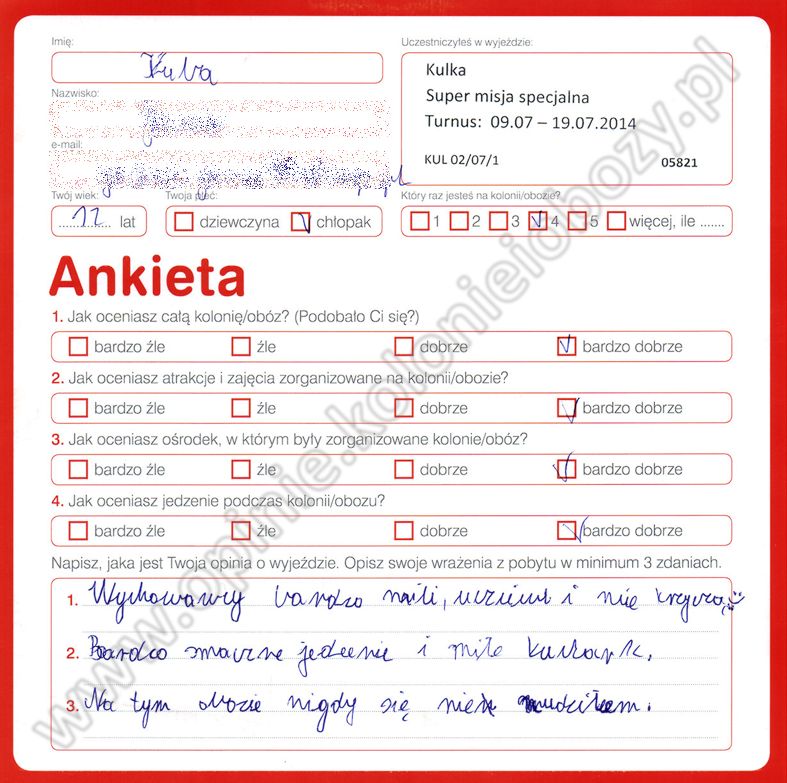 Imię:
Kuba
Nazwisko:
e-mail:
Twój wiek:
12 lat
Twoja płeć:
dziewczyna chłopak
Uczestniczyłeś w wyjeździe:
Kulka
Super misja specjalna
Turnus: 09.07 – 19.07.2014
KUL 02/07/1 05821
Który raz jesteś na kolonii/obozie?
1 2 3 4 5 więcej, ile .......
Ankieta
1. Jak oceniasz całą kolonię/obóz? (Podobało Ci się?)
bardzo źle źle dobrze bardzo dobrze
2. Jak oceniasz atrakcje i zajęcia zorganizowane na kolonii/obozie?
bardzo źle źle dobrze bardzo dobrze
3. Jak oceniasz ośrodek, w którym były zorganizowane kolonie/obóz?
bardzo źle źle dobrze bardzo dobrze
4. Jak oceniasz jedzenie podczas kolonii/obozu?
bardzo źle źle dobrze bardzo dobrze
Napisz, jaka jest Twoja opinia o wyjeździe. Opisz swoje wrażenia z pobytu w minimum 3 zdaniach.
1. Wychowawcy bardzo mili, i nie krzyczą
2. Bardzo smaczne jedzenie i miłe
3. Na tym obozie nigdy się nie nudziłem.
www.opinie.kolonieiobozy.pl